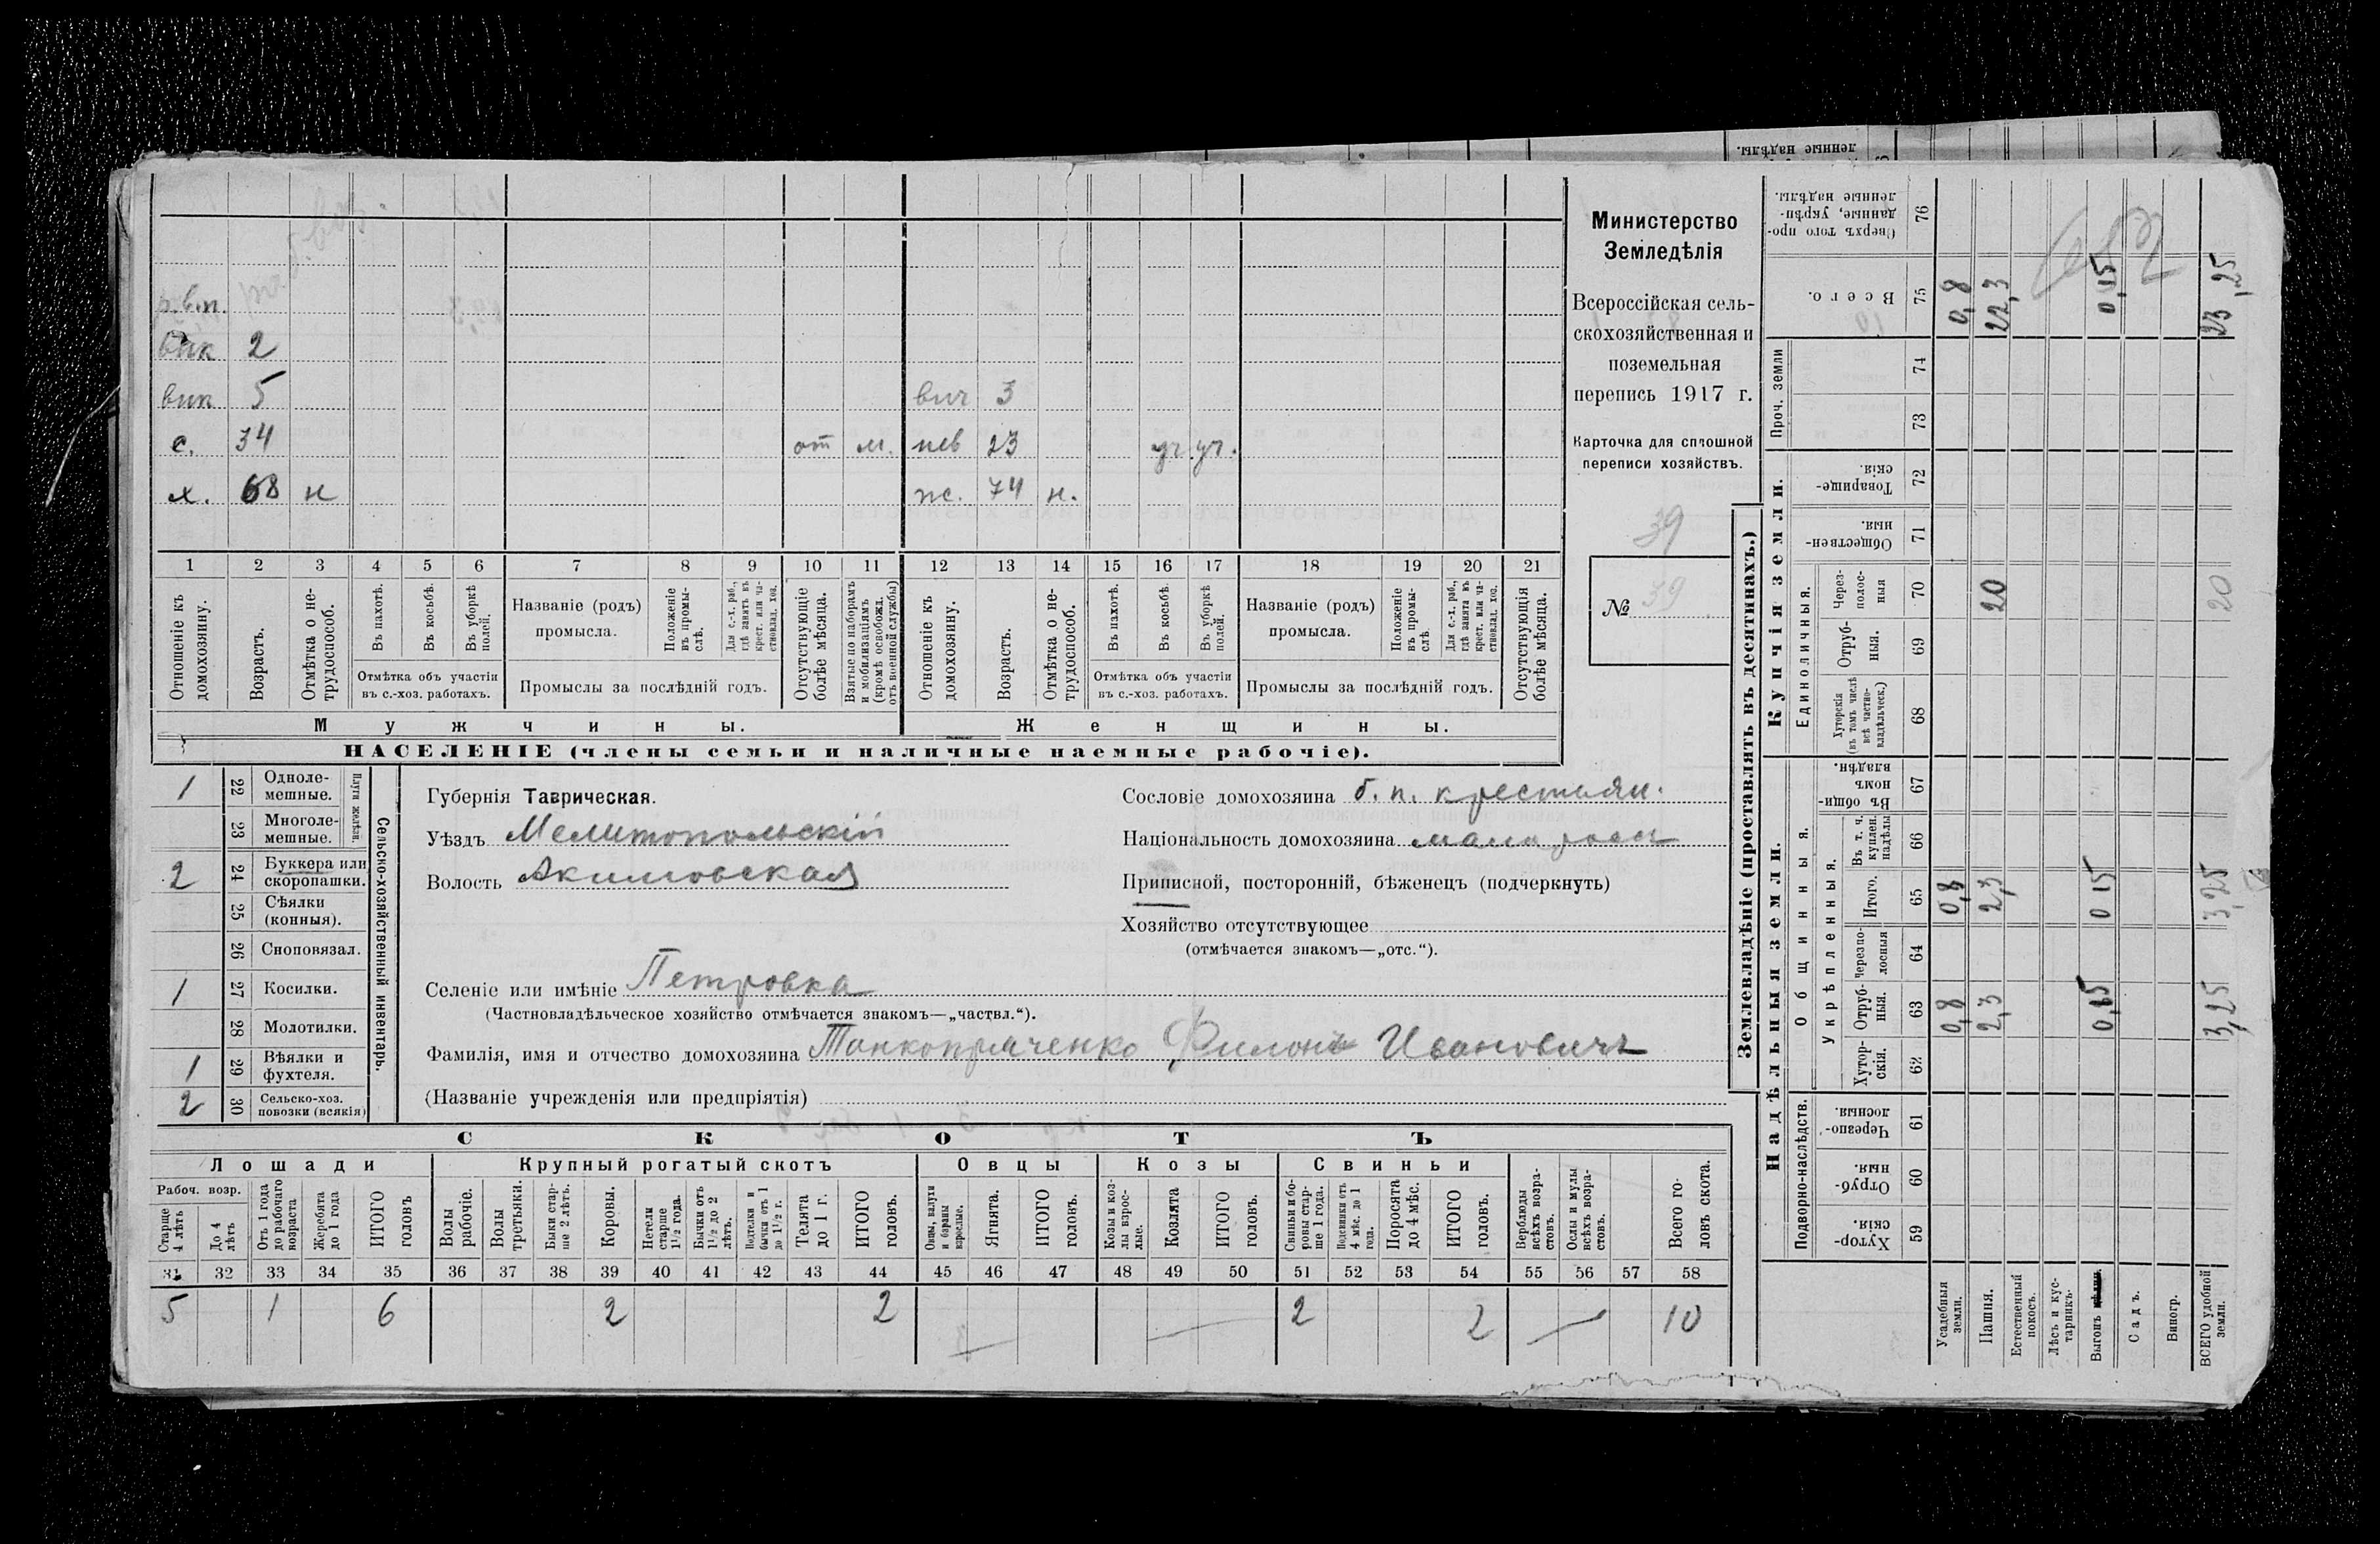 ленные надѣлы.
р.в.п.
внк 2
внк 5 вич 3
с. 34 от м. нев 23 уч. уч.
х. 68 н ж. 74 н.
1 2 3 4 5 6 7 8 9 10 11 12 13 14 15 16 17 18 19 20 21
Отношеніе къ домохозяину.
Возрастъ.
Отмѣтка о не-трудоспособ.
Въ пахотѣ.
Въ косьбѣ.
Въ уборкѣ полей.
Отмѣтка объ участіи въ с.-хоз. работахъ.
Названіе (родъ) промысла.
Положеніе въ промы-слѣ.
Для с.-х. раб., гдѣ занятъ въ крест. или ча-стновлад. хоз.
Промыслы за послѣдній годъ.
Отсутствующіе болѣе мѣсяца.
Взятые по наборамъ и мобилизаціямъ (кромѣ освобожд. отъ военной службы)
Отношеніе къ домохозяину.
Возрастъ.
Отмѣтка о не-трудоспособ.
Въ пахотѣ.
Въ косьбѣ.
Въ уборкѣ полей.
Отмѣтка объ участіи въ с.-хоз. работахъ.
Названіе (родъ) промысла.
Положеніе въ промы-слѣ.
Для с.-х. раб., гдѣ занята въ крест. или ча-стновлад. хоз.
Промыслы за послѣдній годъ.
Отсутствующія болѣе мѣсяца.
Мужчины.
Женщины.
НАСЕЛЕНІЕ (члены семьи и наличные наемные рабочіе).
Министерство
Земледѣлія
Всероссійская сель-
скохозяйственная и
поземельная
перепись 1917 г.
Карточка для сплошной
переписи хозяйствъ.
39
№ 39
1 22 Одноле-мешные.
23 Многоле-мешные.
Плуги желѣзн.
2 24 Буккера или скоропашки.
25 Сѣялки (конныя).
26 Сноповязал.
1 27 Косилки.
28 Молотилки.
1 29 Вѣялки и фухтеля.
2 30 Сельско-хоз. повозки (всякія)
Сельско-хозяйственный инвентарь.
Губернія Таврическая.
Уѣздъ Мелитопольскій
Волость Акимовская
Сословіе домохозяина б. п. крестьян.
Національность домохозяина малоросс
Приписной, посторонній, бѣженецъ (подчеркнуть)
Хозяйство отсутствующее
(отмѣчается знакомъ—„отс.“).
Селеніе или имѣніе Петровка
(Частновладѣльческое хозяйство отмѣчается знакомъ—„частвл.“).
Фамилія, имя и отчество домохозяина Танкопряченко Филонъ Ивановичъ
(Названіе учрежденія или предпріятія)
СКОТЪ
Лошади Крупный рогатый скотъ Овцы Козы Свиньи
Рабоч. возр.
Старше 4 лѣтъ
До 4 лѣтъ
Отъ 1 года до рабочаго возраста
Жеребята до 1 года
ИТОГО головъ
Волы рабочіе.
Волы третьяки.
Быки стар-ше 2 лѣтъ.
Коровы.
Нетели старше 1½ года.
Бычки отъ 1½ до 2 лѣтъ.
Подтелки и бычки отъ 1 до 1½ г.
Телята до 1 г.
ИТОГО головъ.
Овцы, валухи и бараны взрослые.
Ягнята.
ИТОГО головъ.
Козы и коз-лы взрос-лые.
Козлята
ИТОГО головъ.
Свиньи и бо-ровы стар-ше 1 года.
Подсвинки отъ 4 мѣс. до 1 года.
Поросята до 4 мѣс.
ИТОГО головъ.
Верблюды всѣхъ возра-стовъ.
Ослы и мулы всѣхъ возра-стовъ.
Всего го-ловъ скота.
31 32 33 34 35 36 37 38 39 40 41 42 43 44 45 46 47 48 49 50 51 52 53 54 55 56 57 58
5 1 6 2 2 2 2 10
Землевладѣніе (проставлять въ десятинахъ.)
Надѣльныя земли. Купчія земли. Проч. земли
Подворно-наслѣдств. Общинныя. Единоличныя.
Укрѣпленныя.
59 Хутор-скія.
60 Отруб-ныя.
61 Черезпо-лосныя.
62 Хутор-скія.
63 Отруб-ныя.
64 Черезпо-лосныя
65 Итого.
66 Въ т. ч. куплен. надѣлы
67 Въ общи-номъ владѣн.
68 Хуторскія (въ томъ числѣ всѣ частно-владѣльческ.)
69 Отруб-ныя.
70 Через-полос-ныя
71 Обществен-ныя.
72 Товарище-скія.
73
74
75 Всего.
76 Сверхъ того про-данные, укрѣп-ленные надѣлы.
Усадебныя земли. 0,8 0,8 0,8
Пашня. 2,3 2,3 20 22,3
Естественный покосъ.
Лѣсъ и кус-тарникъ.
Выгонъ 0,15 0 15 0,15
Садъ.
Виногр.
ВСЕГО удобной земли. 3,25 3,25 20 23,25